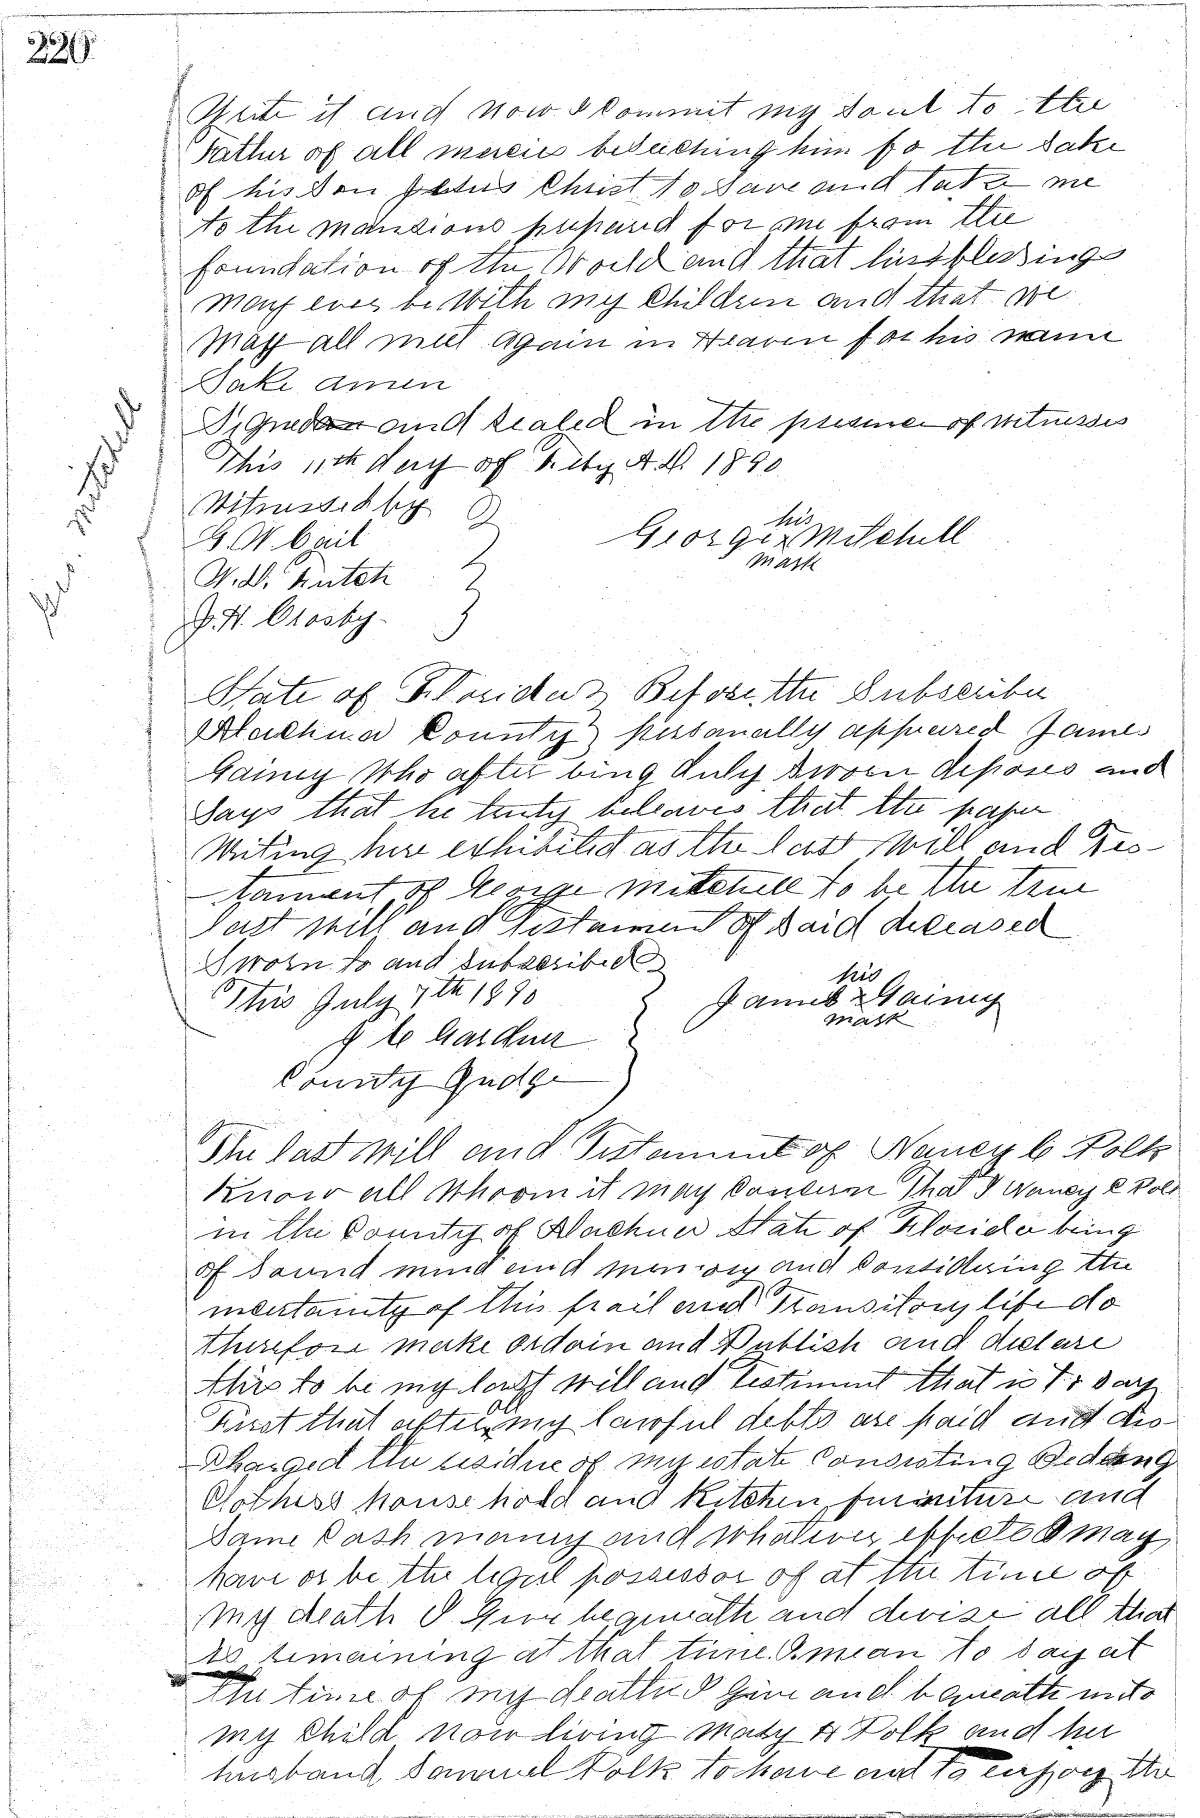 220
Geo. Mitchell
it and now I Commit my Soul to the
Father of all mercies beseeching him fo the Sake
of his Son Jesus Christ to Save and take me
to the mansions prepared for me from the
foundation of the World and that his blessings
may ever be With my Children and that we
May all meet again in Heaven for his name
Sake amen
Signed and sealed in the presence of witnesses
This 11th day of Feby A.D. 1890
Witnessed by
G. W. Cail
W. D. Futch
J. H. Crosby.
his
George x Mitchell
mark
State of Florida Before the Subscriber
Alachua County personally appeared James
Gainey Who after bing duly Sworn deposes and
Says that he truly beleaves that the paper
Writing here exhibited as the last Will and Tes-
-tament of George Mitchell to be the true
last Will and Testament of Said deceased
Sworn to and subscribed
This July 7th 1890
J C Gardner
County Judge
his
James x Gainey
mark
The last Will and Testament of Nancy C Polk
Know all Whoom it may Concern That I Nancy C Polk
in the County of Alachua State of Florida being
of Sound mind and memory and Considering the
uncertainty of this frail and Transitory life do
therefore make ordain and Publish and declare
this to be my last Will and Testiment that is To Say
First that after all my lawful debts are paid and dis-
charged the residue of my estate Consisting Bedding
Clothess house hold and Kitchen furniture and
Some Cash money and Whatever effects I may
have or be the legal possessor of at the time of
My death I Give bequeath and devise all that
is remaining at that time. I mean to Say at
the time of my death I Give and bequeath unto
my Child now living Mary H Polk and her
husband Samuel Polk to have and to enjoy the